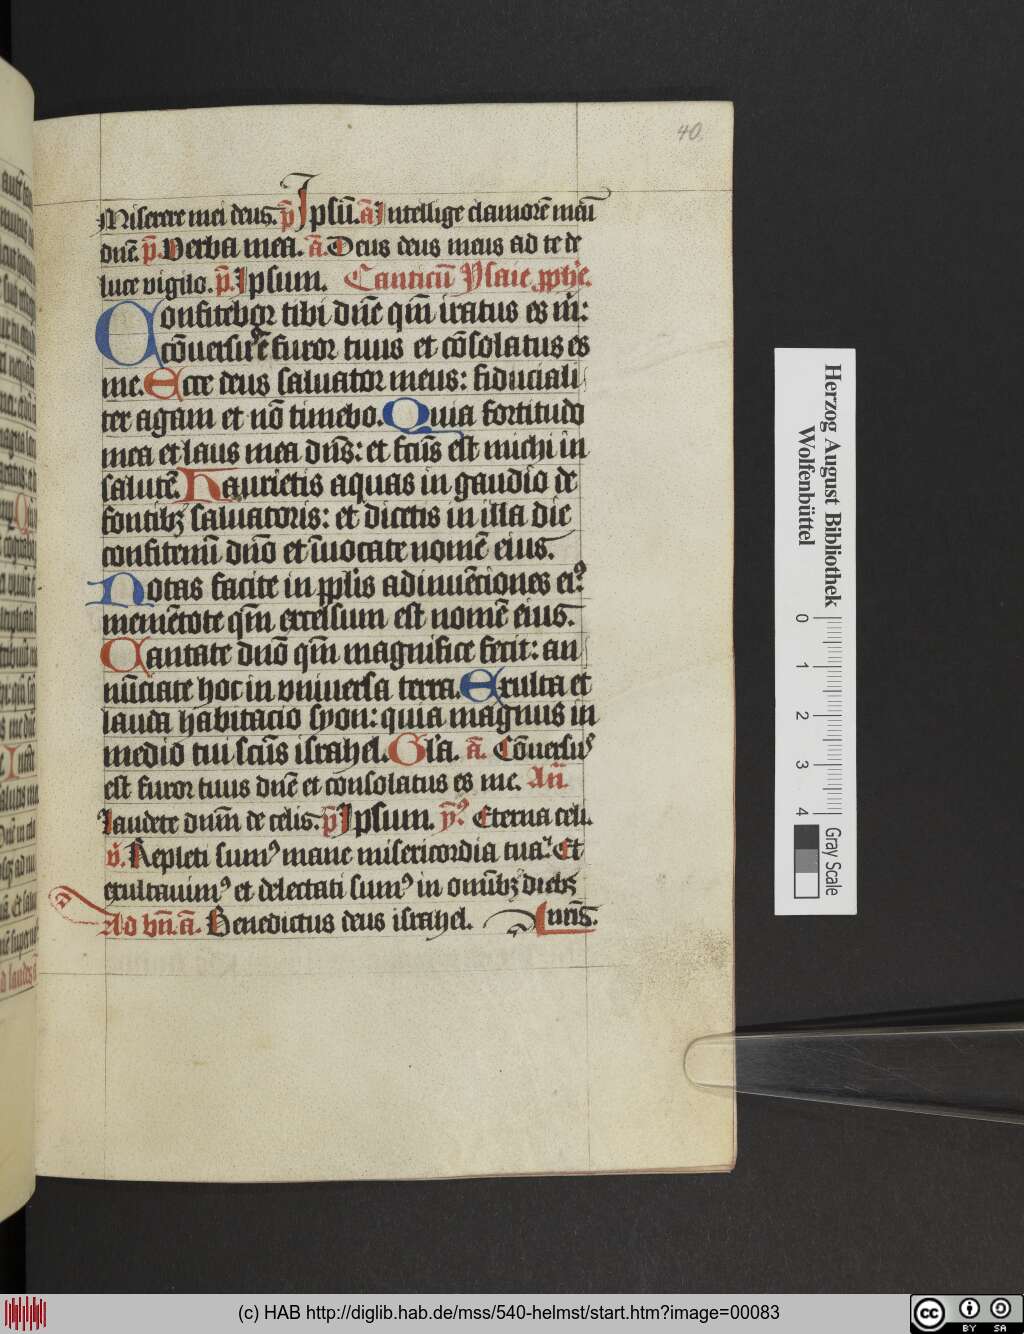 40.
Miserere mei deus. p̄ Ipsū. ā Intellige clamorē meū
dn̄e. p̄. Verba mea. ā. Deus deus meus ad te de
luce vigilo. p̄. Ipsum. Canticū Ysaie pphe̅.
Confitebor tibi dn̄e qm̄ iratus es m̄:
cōuersus ē furor tuus et cōsolatus es
me. Ecce deus saluator meus: fiduciali
ter agam et nō timebo. Quia fortitudo
mea et laus mea dn̄s: et fc̄us est michi in
salutē. Haurietis aquas in gaudio de
fontibꝫ saluatoris: et dicetis in illa die
confitemī dn̄o et īuocate nomē eius.
Notas facite in ppl̄is adinuētiones eiꝰ
memētote qm̄ excelsum est nomē eius.
Cantate dn̄o qm̄ magnifice fecit: an
nūciate hoc in vniuersa terra. Exulta et
lauda habitacio syon: quia magnus in
medio tui sc̄us israhel. Gl̄a. ā. Cōuersus
est furor tuus dn̄e et consolatus es me. Añ
Laudete dnm̄ de celis. p̄ Ipsum. yꝰ. Eterna celi.
v̄. Repleti sumꝰ mane misericordia tua. Et
exultauimꝰ et delectati sumꝰ in omībꝫ diebꝫ
Ad bn̄ ā. Benedictus deus israhel. Lauds.
Herzog August Bibliothek
Wolfenbüttel
0 1 2 3 4
Gray Scale
(c) HAB http://diglib.hab.de/mss/540-helmst/start.htm?image=00083
cc BY SA